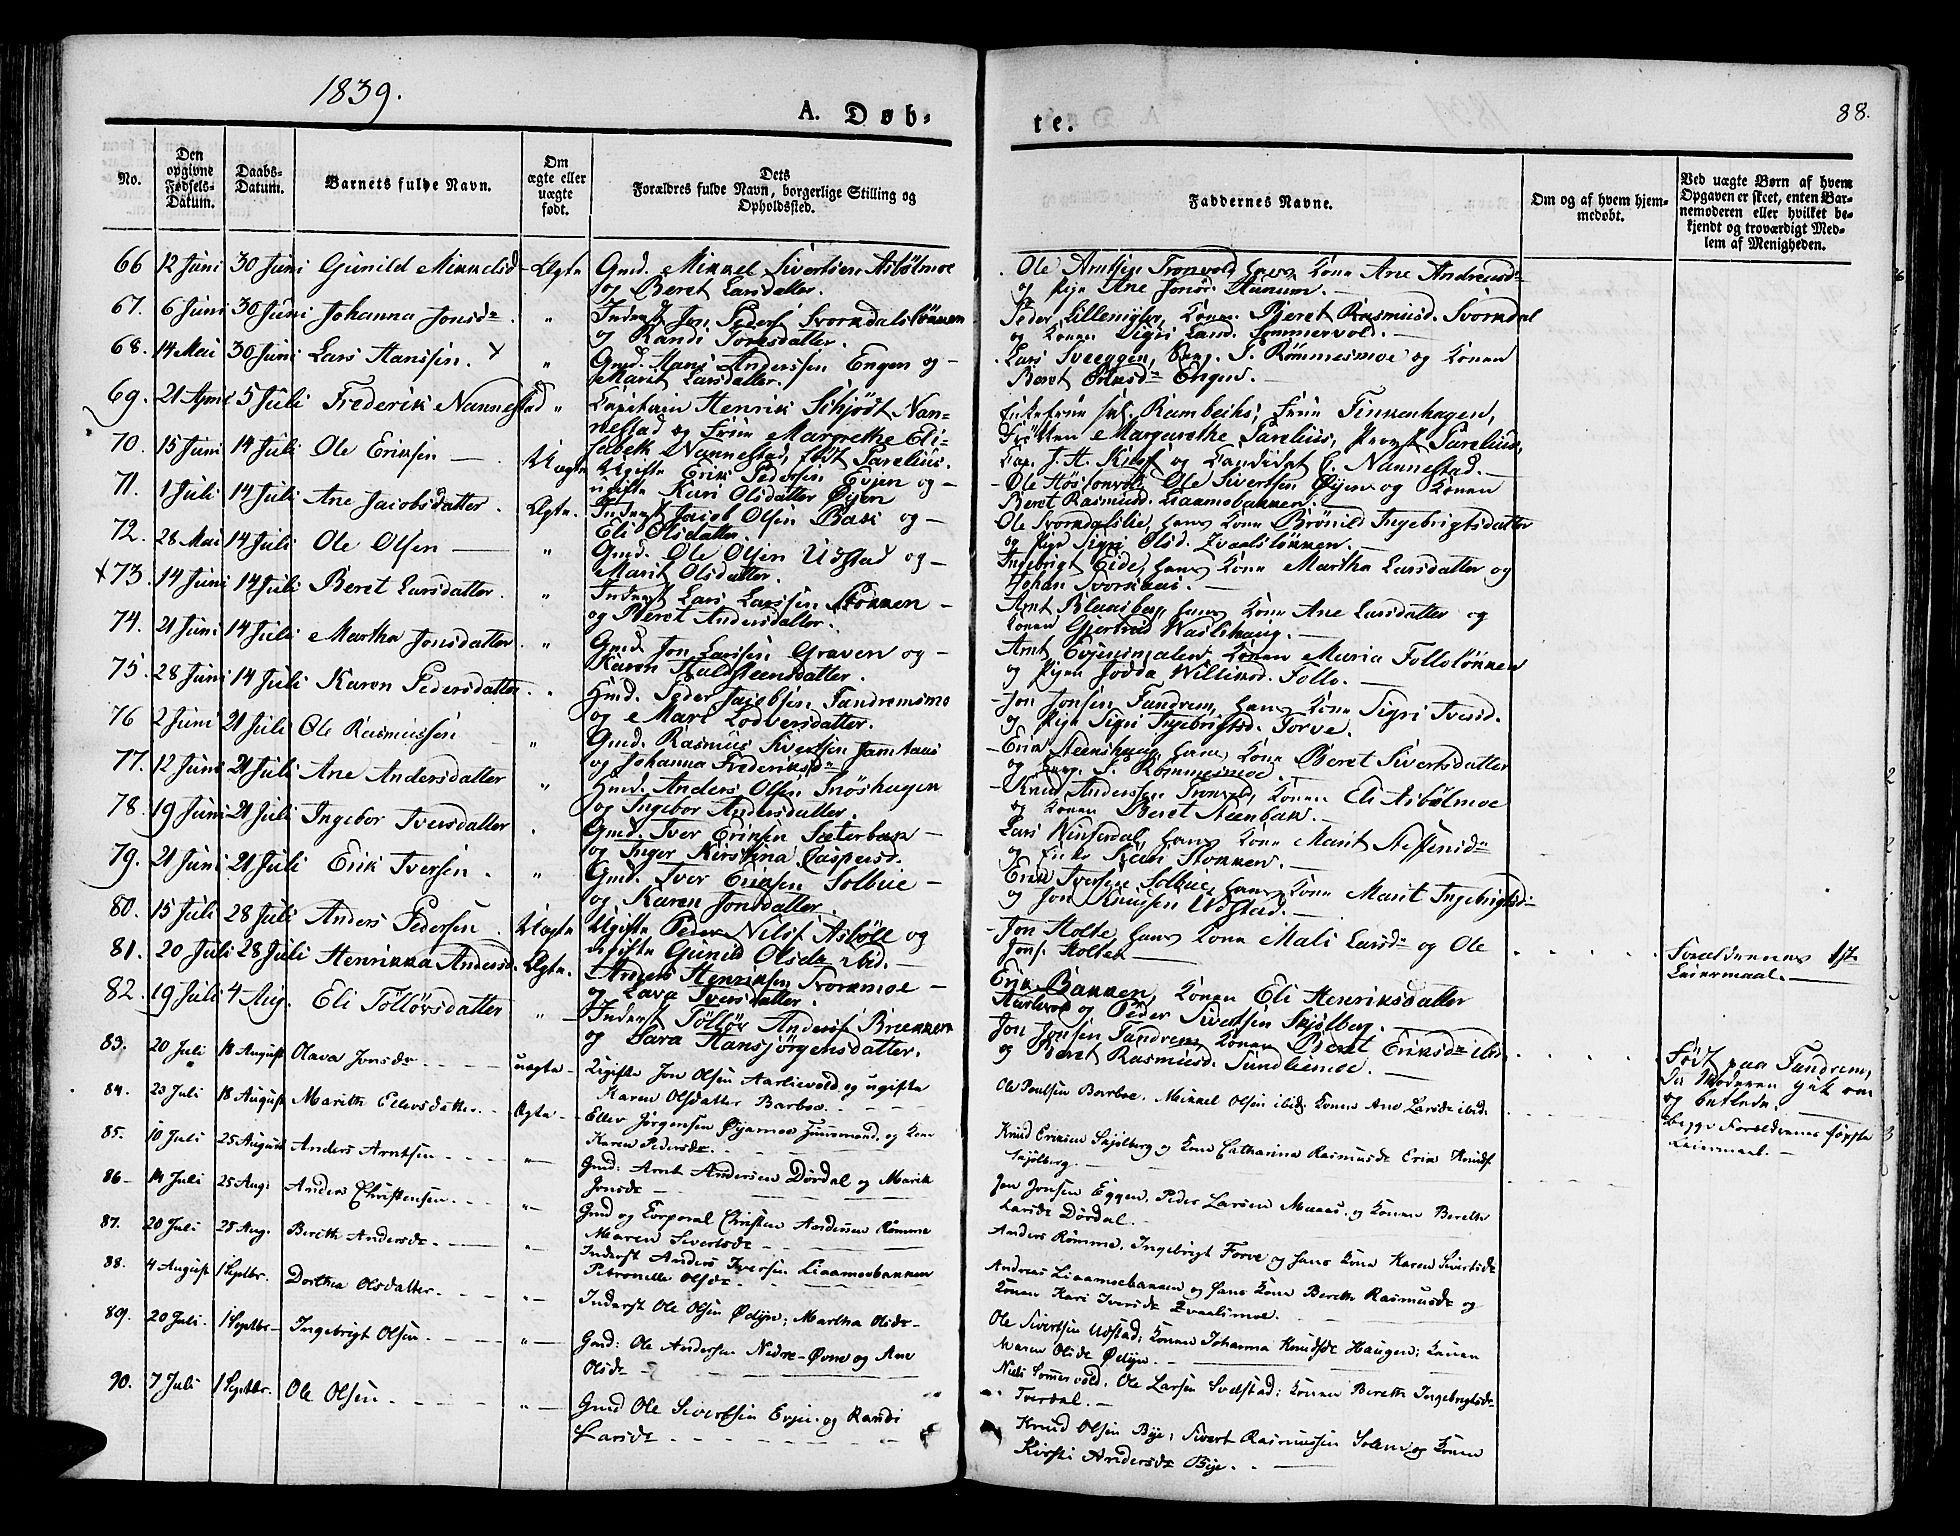 1839.
A. Døb-
te.
88.
No.
Den opgivne Fødsels-Datum.
Daabs-Datum.
Barnets fulde Navn.
Om ægte eller uægte født.
Dets Forældres fulde Navn, borgerlige Stilling og Opholdssted.
Faddernes Navne.
Om og af hvem hjem-medøbt.
Ved uægte Børn af hvem Opgaven er skeet, enten Bar-nemoderen eller hvilket be-kjendt og troværdigt Med-lem af Menigheden.
66 12 Juni 30 Juni Gunild Mikkelsd Ægte Gmd. Mikkel Sivertsen Asbølmoe
og Beret Larsdatter.
Ole Amtsen Tronvold, hans Kone Ane Andreasd
og Pige Ane
67. 6 Juni 30 Juni Johanna Jonsd. " Inderst Jon Peders Svorkdalsløkken
og Randi Toresdatter.
Peder Lillemyhr, Konen Beret Rasmusd. Svorkdal
og Konen Sigri Sommervold.
68. 14 Mai 30 Juni Lars Hanssen. " Gmd. Hans Anderssen Engen og
Marit Larsdatter.
Lars Sveeggen, Rømmesmoe og Konen
Beret Engen.
69. 21 April 5 Juli Frederik Nannestad " Capitain Henrik Schjødt Nan-
nestad og Frue Margrethe Eli-
sabeth Nannestad, født Parelius.
Enkefrue sal. Rambechs, Frue Finkenhagen,
Frøken Margarethe Parelius, Provst Parelius,
Cap. J. A. og Candidat C. Nannestad.
70. 15 Juni 14 Juli Ole Eriksen Uægte Ugifte Erik Pedersen Evjen og
ugifte Kari Olsdatter Øyen
Ole Ole Sivertsen Øyen og Konen
Beret Rasmusd. Liaamoebakken.
71. 1 Juli 14 Juli Ane Jacobsdatter. Ægte. Inderst Jacob Olsen Bak og
Eli Olsdatter.
Ole Svorkdalslie, hans Kone Brønild Ingebrigtsdatter
og Pige Sigri Olsd. Kvaalsløkken.
72. 28 Mai 14 Juli Ole Olsen " Gmd. Ole Olsen Udstad og
Marit Olsdatter.
Ingebrigt Eide, hans Kone Martha Larsdatter og
Johan Svorkmoe.
x 73. 14 Juni 14 Juli Beret Larsdatter. " Inderst Lars Larssen Stokken
og Beret Andersdatter.
Amt hans Kone Ane Larsdatter og
Konen Gjertrud Waslehaug.
74. 21 Juni 14 Juli Martha Jonsdatter. " Gmd. Jon Larssen Graven og
Karen Haldsteensdatter.
Amt Konen Maria Folloløkken
og Pigen Jødda Willumsd. Follo.
75. 28 Juni 14 Juli Karen Pedersdatter " Hmd. Peder Jacobsen Fandremsmo
og Mari Lodversdatter.
Jon Jonsen Fandrem, hans Kone Sigri Iversd.
og Pige Sigri Ingebrigtsd. Forve.
76 2 Juni 21 Juli Ole Rasmussen " Gmd. Rasmus Sivertsen Jamtaas
og Johanna Frederiksd
Erik Steenshaug, hans Kone Beret Sivertsdatter
og Rømmesmoe.
77. 12 Juni 21 Juli Ane Andersdatter " Hmd. Anders Olsen Snøshagen
og Ingebor Andersdatter.
Knud Anderssen Tronvold, Konen Eli Asbølmoe
og Konen Beret Steenbak.
78. 19 Juni 21 Juli Ingebor Iversdatter Gmd. Iver Eriksen Sæterbak
og Inger Kirstina Caspersd.
Lars Winterdal, hans Kone Marit Steffensd
og Enke Stokken.
79. 21 Juni 21 Juli Erik Iversen. " Gmd. Iver Eriksen Solbue
og Karen Jonsdatter.
Erik Iversen Solbue, hans Kone Marit Ingebrigtsd
og Jon Knudsen Udstad.
80. 15 Juli 28 Juli Anders Pedersen Uægte Ugifte Peder Nilss Asbølle og
ugifte Gunild Olsd. ibid.
Jon Holte, hans Kone Mali Larsd og Ole
Jons. Holte
Forældrenes 1ste
Leiermaal.
81. 20 Juli 28 Juli Henrikka Andersd. Ægte. Anders Henriksen Svorkmoe
og Lava Iversdatter.
Erik Bakken, Konen Eli Henriksdatter
og Peder Sivertsen Skjølberg.
82. 19 Juli 4 Aug. Eli Tølløvsdatter " Inderst Tølløv Anders. Brekken
og Sara Hansjørgensdatter.
Jon Jonsen Fandrem, Konen Beret Eriksd ibid.
og Beret Rasmusd. Sundliemoe.
83. 20 Juli 18 August Olava Jonsd uægte Ugifte Jon Olsen Aarlivold og ugifte
Karen Olsdatter Barboe.
Ole Poulsen Barboe, Mikkel Olsen ibid. Kone Ane Larsd ibid.
Født paa Fandrem,
da Moderen gik om
og betlede.
begge Forældrenes første
Leiermaal.
84. 23 Juli 18 August Marith Ellevsdatter Ægte Ellev Jørgensen Øyamoe Huusmand, og Kone
Karen Pedersd.
Knud Eriksen Skjølberg og Kone Catharina Rasmusd Erik Knuds.
Skjølberg.
85. 10 Juli 25 August Anders Arntsen " Gmd: Arnt Andersen Dørdal og Marit
Jonsd
Jon Jonsen Eggen, Peder Larsen Muaas, og Konen Bereth
Larsd Dørdal.
86 14 Juli 25 Aug. Anders Christensen. " Gmd og Corporal Christen Andersen Rømme
Maren Sivertsd
Anders Rømme, Ingebrigt Forve og hans Kone Karen Sivertsd
87. 20 Juli 25 Aug. Bereth Andersd. " Inderst Anders Iversen Liaamoebakken
Petronelle Olsd.
Andreas Liaamoebakken og hans Kone Bereth Rasmusd og
Konen Kari Iversd Kvaalsmoe.
88. 4 August 1 Septbr. Dorthea Olsdatter. " Inderst Ole Olsen Ødlyn; Martha Olsd
Ole Sivertsen Udstad; Konen Johanna Knudsd Haugen; Konen
Maren Olsd Ødlyn.
89. 20 Juli. 1 Septbr. Ingebrigt Olsen. " Gmd: Ole Andersen Nedre-Øvne og Ane
Olsd
Niels Somervold, Ole Larsen Solstad; Konen Bereth Ingebrigtsd
Tverdal.
90. 7 Juli 1 Septbr. Ole Olsen " Gmd Ole Sivertsen Evjen og Randi
Larsd
Knud Olsen Bye; Sivert Rasmussen Solem og Konen
Kirsti Andersd Bye.